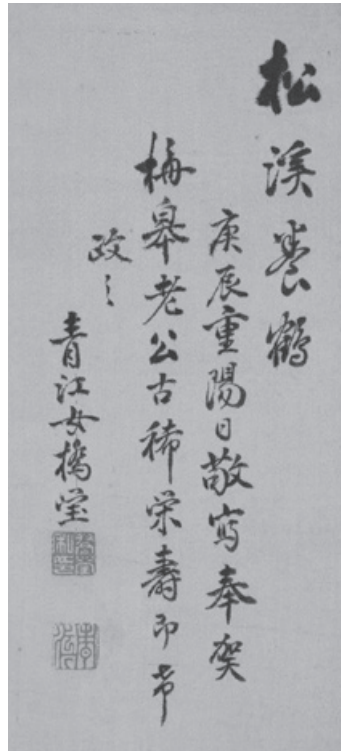 松溪養鶴
庚辰重陽日敬寫奉賀
梅皋老公古稀栄壽即希
政之
青江女橋瑩